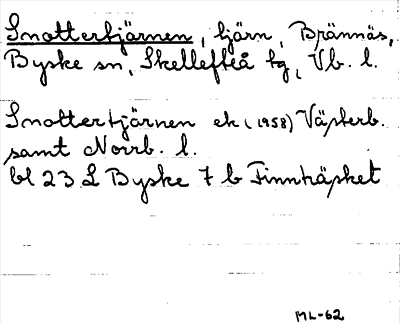 Snottertjärnen, tjärn, Brännäs,
Byske sn, Skellefteå tg, Vb. l.
Snottertjärnen ek (1958) Västerb.
samt Norrb. l.
bl 23 L Byske 7 b Finnträsket
ML-62